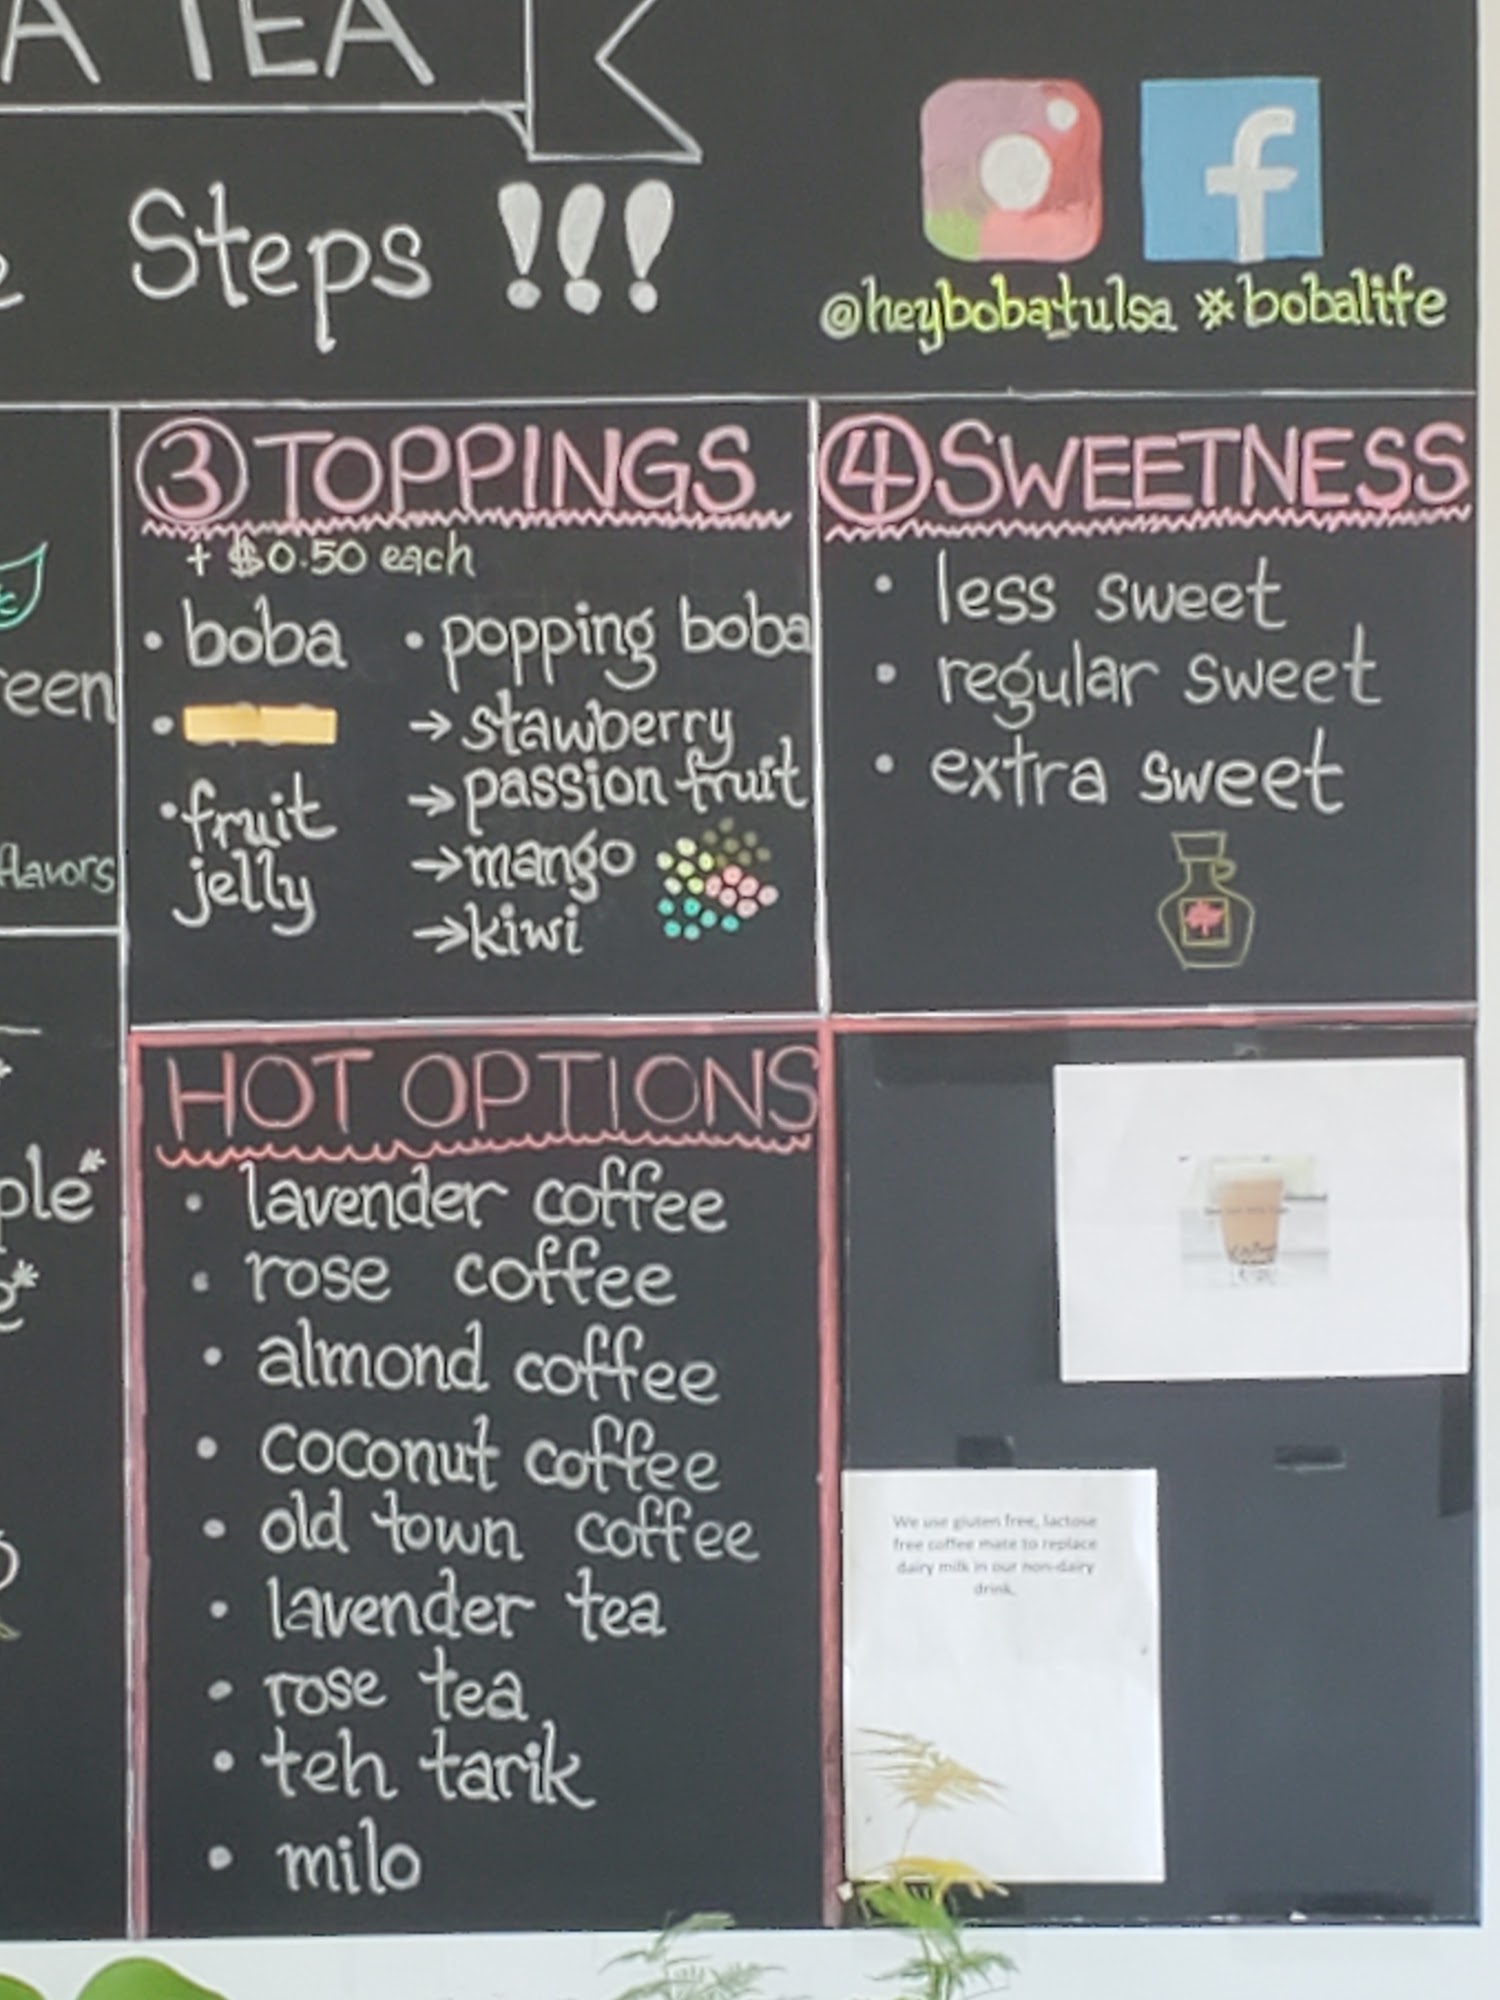 A TEA
Steps !!!
@heybobatulsa #bobalife
3 TOPPINGS
+ $0.50 each
• boba
•
• fruit
jelly
• popping boba
→ stawberry
→ passion fruit
→ mango
→ kiwi
4 SWEETNESS
• less sweet
• regular sweet
• extra sweet
reen
flavors
ple*
e*
HOT OPTIONS
• lavender coffee
• rose coffee
• almond coffee
• coconut coffee
• old town coffee
• lavender tea
• rose tea
• teh tarik
• milo
We use gluten free, lactose
free coffee mate to replace
dairy milk in our non-dairy
drink.